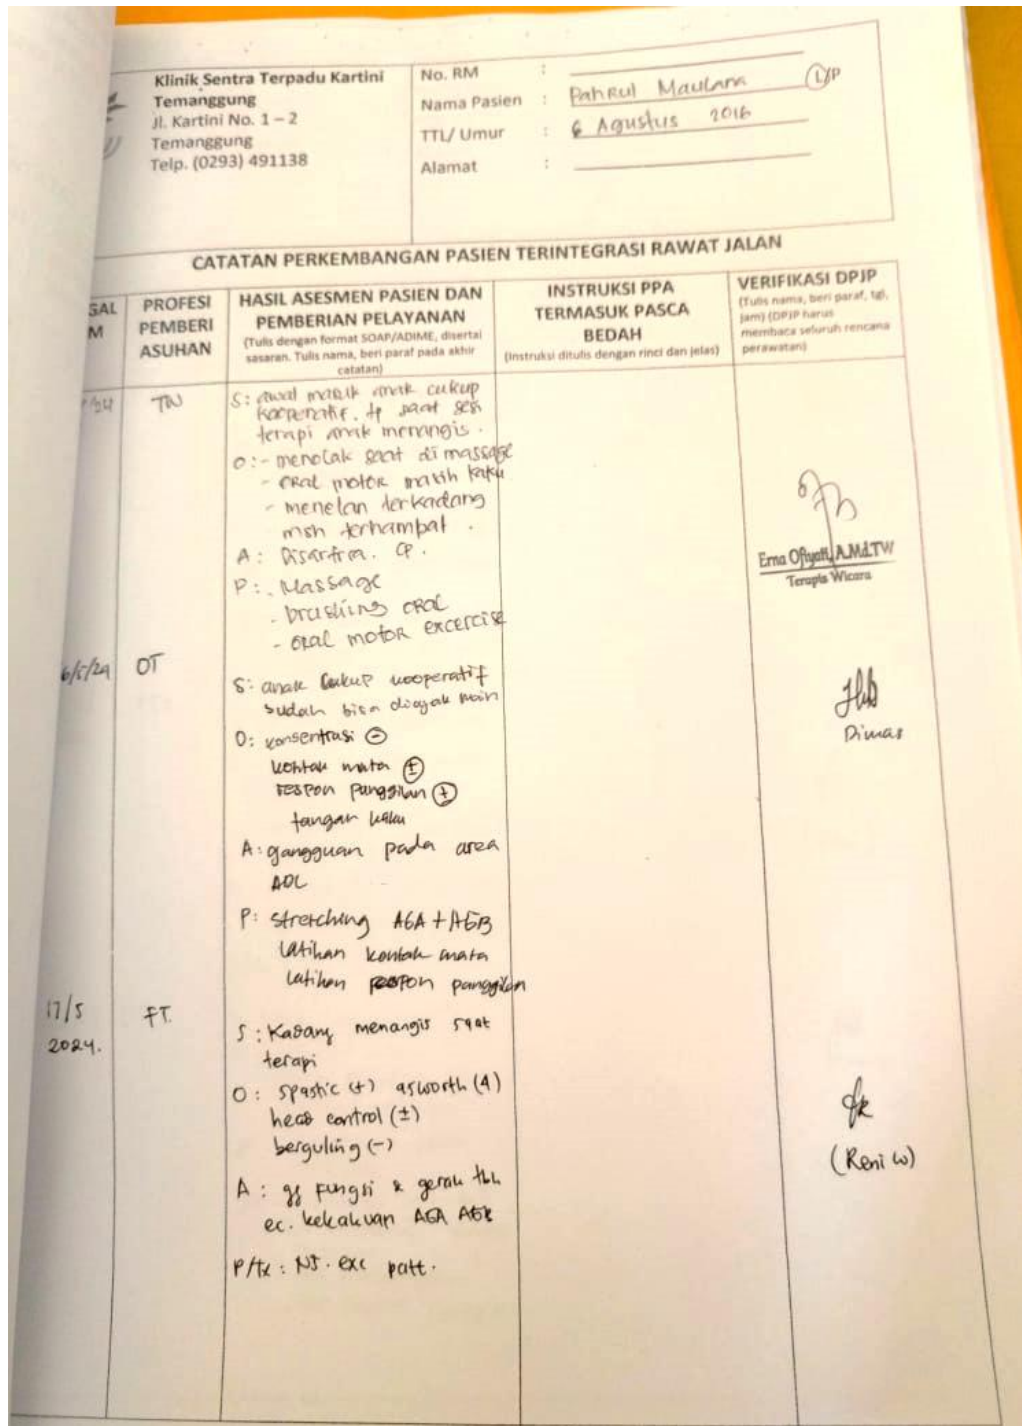 Klinik Sentra Terpadu Kartini
Temanggung
Jl. Kartini No. 1 – 2
Temanggung
Telp. (0293) 491138
No. RM :
Nama Pasien : Pahrul Maulana L/P
TTL/ Umur : 6 Agustus 2016
Alamat :
CATATAN PERKEMBANGAN PASIEN TERINTEGRASI RAWAT JALAN
GAL
M
PROFESI
PEMBERI
ASUHAN
HASIL ASESMEN PASIEN DAN
PEMBERIAN PELAYANAN
(Tulis dengan format SOAP/ADIME, disertai
sasaran. Tulis nama, beri paraf pada akhir
catatan)
INSTRUKSI PPA
TERMASUK PASCA
BEDAH
(Instruksi ditulis dengan rinci dan jelas)
VERIFIKASI DPJP
(Tulis nama, beri paraf, tgl,
jam) (DPJP harus
membaca seluruh rencana
perawatan)
TW
S: awal masuk anak cukup
kooperatif. tp saat sesi
terapi anak menangis.
O: - menolak saat di massage
- oral motor masih kaku
- menelan terkadang
msh terhambat.
A: Disartria. CP.
P: . Massage
- brushing oral
- oral motor excercise
Erna Ofiyati, A.Md.TW
Terapis Wicara
6/5/24 OT
S: anak cukup kooperatif
sudah bisa diajak main
O: konsentrasi (-)
kontak mata (±)
respon panggilan (+)
tangan kaku
A: gangguan pada area
ADL
P: stretching AGA + AGB
latihan kontak mata
latihan respon panggilan
Dimas
17/5
2024.
FT.
S: Kadang menangis saat
terapi
O: spastic (+) asworth (4)
head control (±)
berguling (-)
A: gg fungsi & gerak tbh
ec. kekakuan AGA AGB
P/tx: NS. exc patt.
(Reni W)